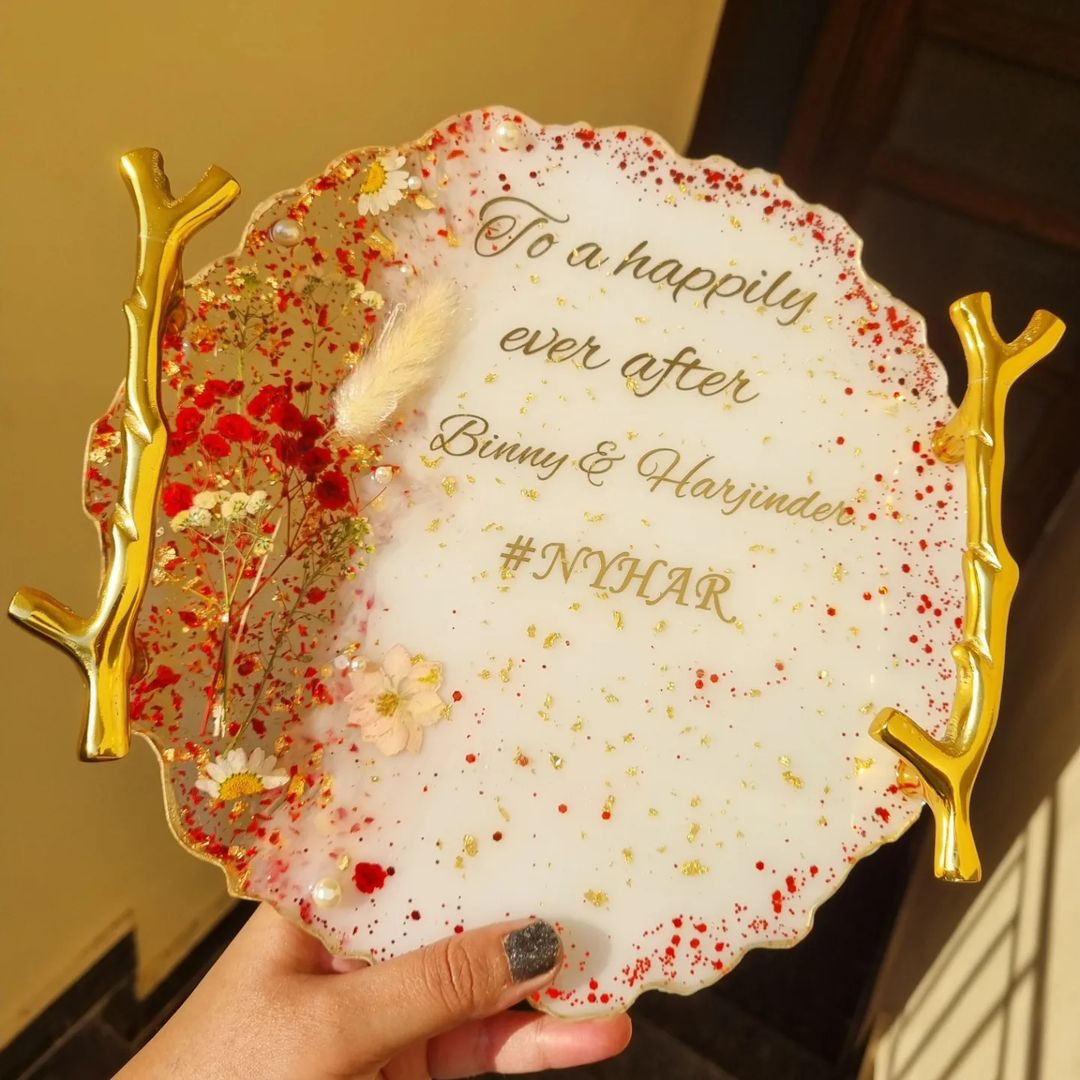 To a happily
ever after
Binny & Harjinder
#NYHAR